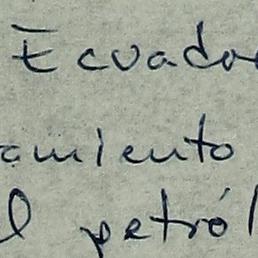 Ecuado
amiento
l petról